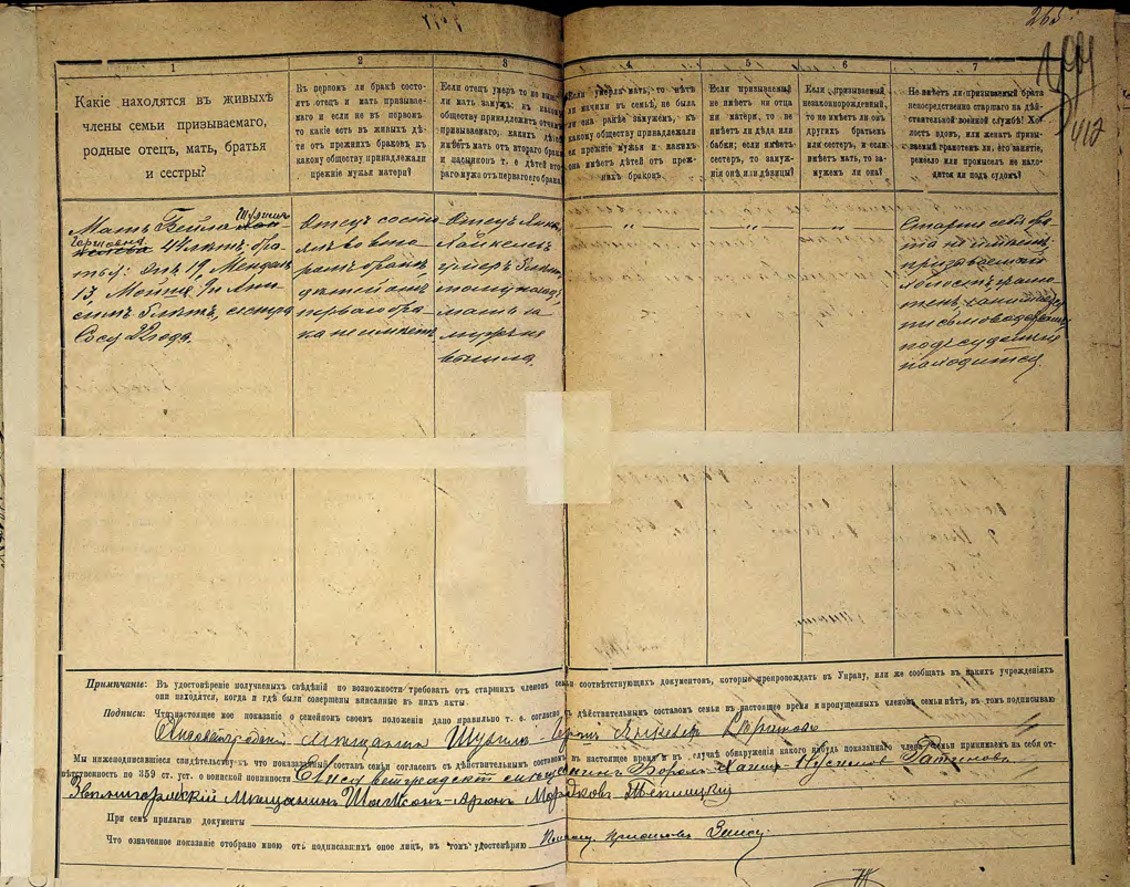 265.
412
1
2
3
4
5
6
7
Какіе находятся въ живыхъ
члены семьи призываемаго,
родные отецъ, мать, братья
и сестры?
Въ первомъ ли бракѣ состо-
ятъ отецъ и мать призывае-
маго и если не въ первомъ
то какіе есть въ живыхъ дѣ-
те отъ прежнихъ браковъ къ
какому обществу принадлежали
прежніе мужья матери?
Если отецъ умеръ то не вышла
ли мать замужъ; къ какому
обществу принадлежитъ отчимъ
призываемаго; какихъ дѣтей
имѣетъ мать отъ втораго брака
и пасынковъ т. е. дѣтей вто-
раго мужа отъ перваго его брака
Если умерла мать, то нѣтъ
ли мачихи въ семьѣ, не была
ли она ранѣе замужемъ, къ
какому обществу принадлежали
ея прежніе мужья и какихъ
она имѣетъ дѣтей отъ преж-
нихъ браковъ.
Если призываемый
не имѣетъ ни отца
ни матери, то не
имѣетъ ли дѣда или
бабки; если имѣетъ
сестеръ, то замуж-
нія онѣ или дѣвицы?
Если призываемый,
незаконнорожденный,
то не имѣетъ ли онъ
другихъ братьевъ
или сестеръ, и если
имѣетъ мать, то за-
мужемъ ли она?
Не имѣетъ ли призываемый брата
непосредственно старшаго на дѣй-
ствительной военной службѣ? Хо-
лостъ вдовъ, или женатъ призы-
ваемый грамотенъ ли, его занятіе,
ремесло или промыселъ не нахо-
дится ли подъ судомъ?
Мать Бейла
44 лѣтъ. бра-
тья: 19, Мендель
13, сестра
22 года.
Отецъ состо
ялъ во вто-
ромъ бракѣ
дѣтей отъ
перваго бра-
ка не имѣетъ
Отецъ
умеръ
мать за
мужъ не
вышла.
„
„
„
Старше себя бра-
та не имѣетъ.
призываемый
холостъ грамо-
тенъ, занимается
письмоводствомъ,
подъ судомъ не
находится.
Примѣчаніе: Въ удостовѣреніе получаемыхъ свѣдѣній по возможности требовать отъ старшихъ членовъ семьи соотвѣтствующихъ документовъ, которые препровождать въ Управу, или же сообщать въ какихъ учрежденіяхъ
они находятся, когда и гдѣ были совершены вписанные въ нихъ акты.
Подписи: Что настоящее мое показаніе о семейномъ своемъ положеніи дано правильно т. е. согласно съ дѣйствительнымъ составомъ семьи въ настоящее время и пропущенныхъ членовъ семьи нѣтъ, въ томъ подписываю
Елисаветградскій мѣщанинъ
Мы нижеподписавшіеся свидѣтельствуемъ что показанный составъ семьи согласенъ съ дѣйствительнымъ составомъ въ настоящее время и въ случаѣ обнаруженія какого нибудь показаннаго члена семьи принимаемъ на себя от-
вѣтственность по 359 ст. уст. о воинской повинности Елисаветградскій мѣщанинъ
Звенигородскій мѣщанинъ Шамсонъ-Аронъ Мордковъ Теплицкій
При семъ прилагаю документы
Что означенное показаніе отобрано мною отъ подписавшихъ оное лицъ, въ томъ удостовѣряю